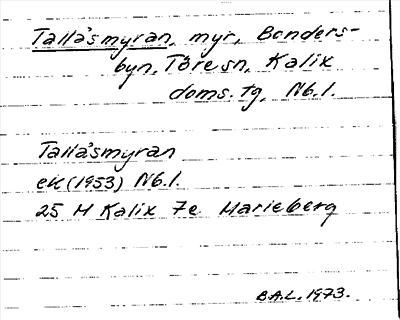 Tallåsmyran, myr, Bonders-
byn, Töre sn, Kalix
doms. tg, Nb.l.
Tallåsmyran
ek (1953) Nb.l.
25 M Kalix 7e Marieberg
B.A.L. 1973.